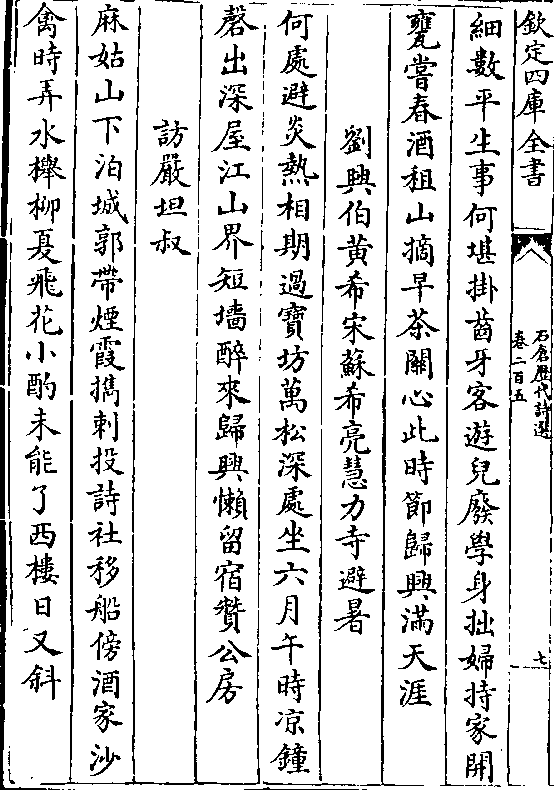 欽定四庫全書
石倉歷代詩選
卷二百五
七
細數平生事何堪掛齒牙客遊兒廢學身拙婦持家開
甕嘗春酒租山摘早茶關心此時節歸興滿天涯
劉興伯黄希宋蘇希亮慧力寺避暑
何處避炎熱相期過寶坊萬松深處坐六月午時凉鐘
磬出深屋江山界短墻醉來歸興懶留宿贊公房
訪嚴坦叔
麻姑山下泊城郭帶煙霞擕刺投詩社移船傍酒家沙
禽時弄水櫸柳夏飛花小酌未能了西樓日又斜